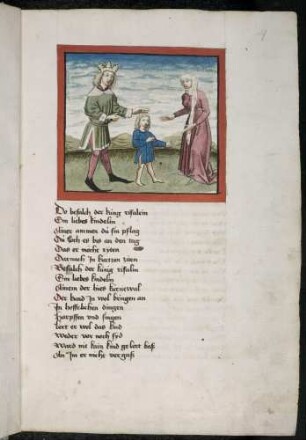 Do befalch der küng rifalin
Ein liebes kindelin
Einer ammen dü sin pflag
Dü sach es bis an den tag
Das er mocht ryten
Darnach In kurtzen ziten
Befalch der küng rifalin
Ein liebes kindelin
Einem der hies kurnewal
Der kund In wol bringen an
In hoffelichen dingen
Harpffen vnd singen
lert er wol das kind
Weder vor noch sid
Ward nie kein kind gelert bas
An Im er nicht vergas